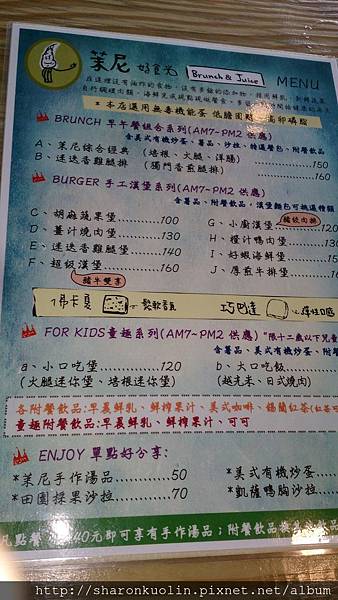 茉尼 好食光 Brunch & Juice MENU
在這裡沒有油炸的食物，沒有多餘的添加物，採用鮮乳
* 本店選用無毒機能蛋 低膽固醇 高卵磷脂
BRUNCH 早午餐組合系列(AM7~PM2 供應)
含美式有機炒蛋、薯品、沙拉、精選餐包、附餐飲品
A、茉尼綜合經典 (培根、火腿、洋腸) 150
B、迷迭香雞腿排 (獨門香煎腿排) 160
BURGER 手工漢堡系列(AM7~PM2 供應)
含薯品、附餐飲品，漢堡麵包可挑選種類
C、胡麻蔬果堡 100
D、薑汁燒肉堡 130
E、迷迭香雞腿堡 140
F、超級漢堡 160
豬牛雙享
G、小廚漢堡 120
豬絞肉排
H、橙汁鴨肉堡 130
I、好蝦海鮮堡 150
J、厚煎牛排堡
佛卡夏 鬆軟香氣
巧巴達 彈性口感
FOR KIDS童趣系列(AM7~PM2 供應) "限十二歲以下兒童
含薯品、美式有機炒蛋、附餐
a、小口吃堡 120
(火腿迷你堡、培根迷你堡)
b、大口吃飯
(越光米、日式燒肉)
各附餐飲品:早晨鮮乳、鮮榨果汁、美式咖啡、錫蘭紅茶(紅茶可
童趣附餐飲品:早晨鮮乳、鮮榨果汁、可可
ENJOY 單點好分享:
*茉尼手作湯品 50
*田園採果沙拉 70
*美式有機炒蛋
*凱薩鴨胸沙拉
凡點餐 40元即可享有手作湯品；附餐飲品
http://sharonkuolin.pixnet.net/album